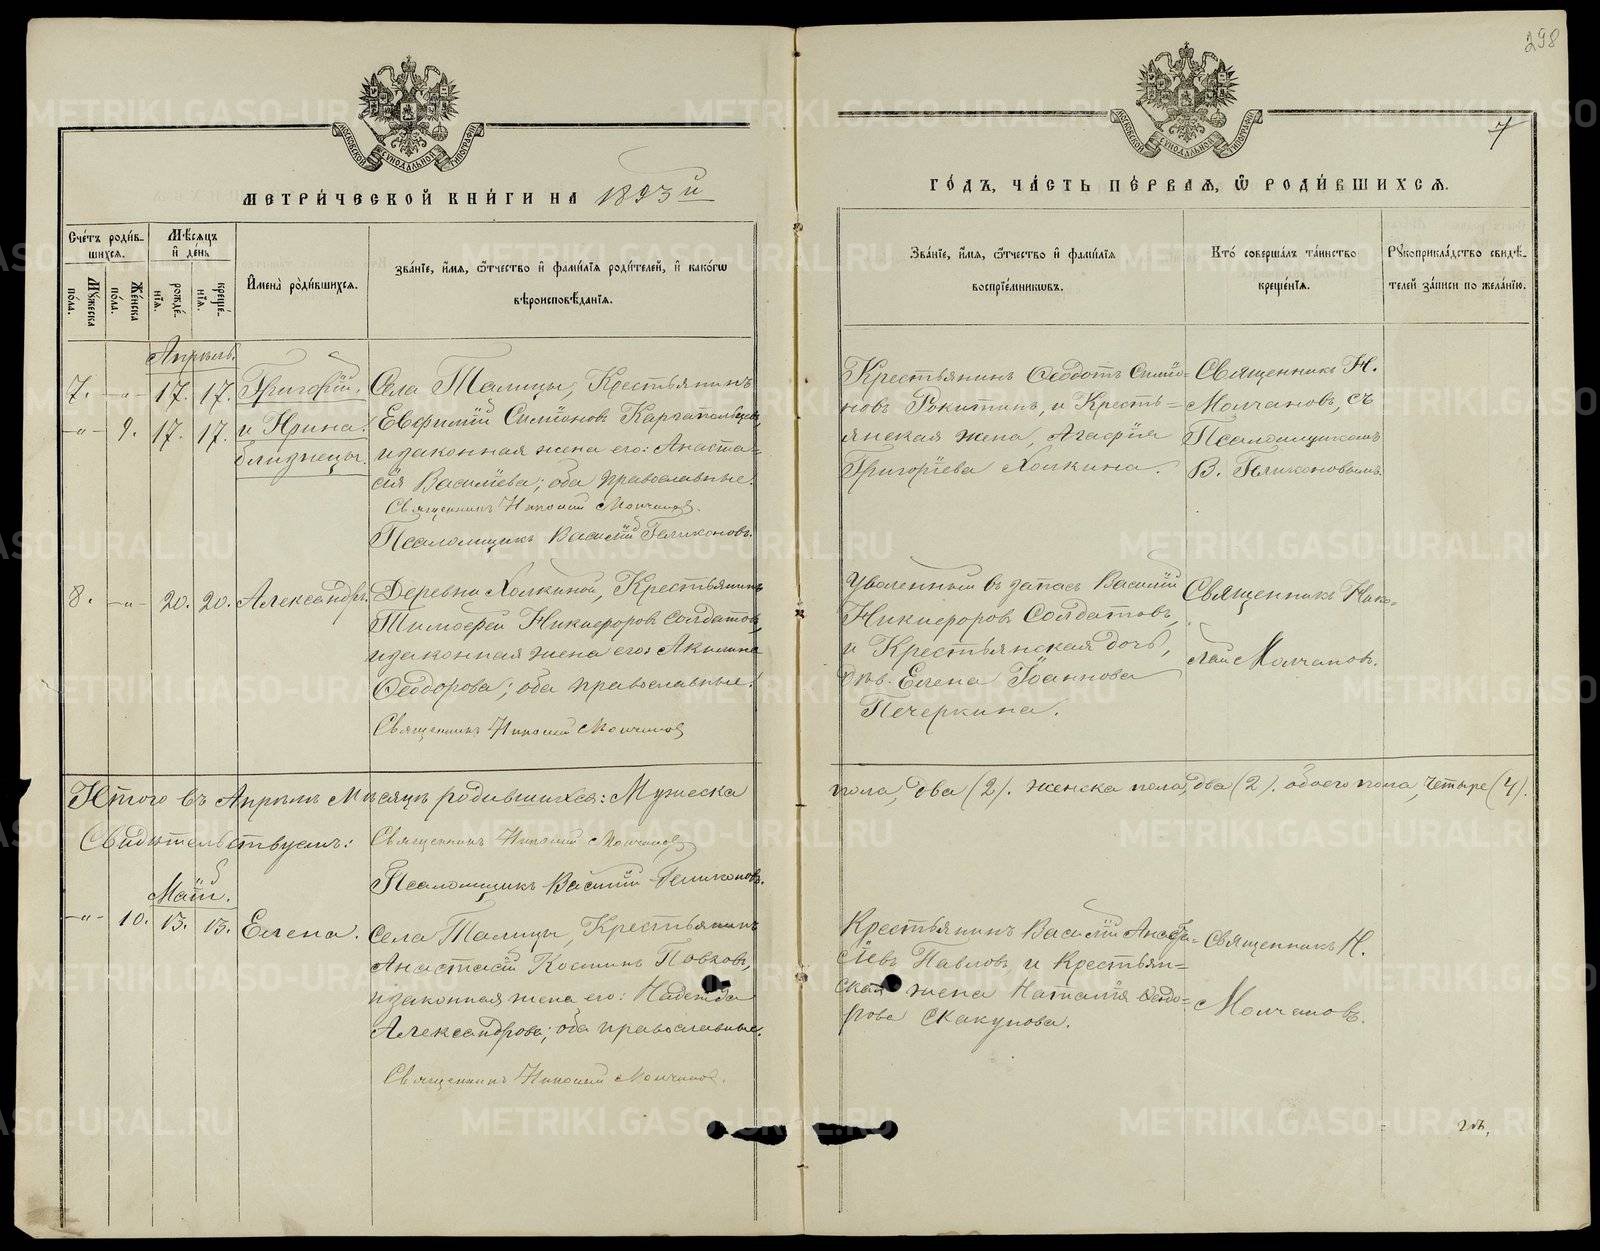 298
7
МОСКОВСКОЙ СУНОДАЛЬНОЙ ТИПОГРАФІИ
МОСКОВСКОЙ СУНОДАЛЬНОЙ ТИПОГРАФІИ
МЕТРИ́ЧЕСКОЙ КНИ́ГИ НА 1893й
ГО́ДЪ, ЧА́СТЬ ПЕ́РВАѦ, Ѿ РОДИ́ВШИХСѦ.
Сче́тъ роди́в-
шихсѧ.
Мꙋ́жеска
по́ла.
Же́нска
по́ла.
Мѣ́сѧцъ
и҆ де́нь
рожде́-
нїѧ.
креще́-
нїѧ.
И҆мена̀ роди́вшихсѧ.
Зва́нїе, и҆́мѧ, ѻ҆́тчество и҆ фами́лїѧ роди́телей, и҆ како́гѡ
вѣроисповѣ́данїѧ.
Зва́нїе, и҆́мѧ, ѻ҆́тчество и҆ фами́лїѧ
воспрїе́мникѡвъ.
Кто̀ соверша́лъ та́инство
креще́нїѧ.
Рꙋкоприкла́дство свидѣ́-
телей за́писи по жела́нїю.
Апрѣль.
7. -„- 17. 17. Григорій,
-„- 9. 17. 17. и Ирина.
близнецы.
Села Талицы, Крестьянинъ
Евфимій Симіоновъ Каргапольцевъ,
и законная жена его: Анаста-
сія Василіева; оба православные.
Священникъ Николай Молчановъ.
Псаломщикъ Василій Геликоновъ.
Крестьянинъ Ѳеодотъ Симіо-
новъ Рокитинъ, и Кресть=
янская жена, Агафія
Григоріева Холкина.
Священникъ Н.
Молчановъ, съ
Псаломщикомъ
В. Геликоновымъ.
8. -„- 20. 20. Александръ.
Деревни Холкиной, Крестьянинъ
Тимоѳей Никифоровъ Солдатовъ,
и законная жена его: Акилина
Ѳеодорова; оба православные.
Священникъ Николай Молчановъ
Уволенный въ запасъ Василій
Никифоровъ Солдатовъ,
и Крестьянская дочь,
дѣв. Елена Іоаннова
Печеркина.
Священникъ Нико-
лай Молчановъ.
Итого въ Апрѣлѣ мѣсяцѣ родившихся: Мужеска
пола, два (2). женска пола, два (2). обоего пола, четыре (4).
Свидѣтельствуемъ: Священникъ Николай Молчановъ
Псаломщикъ Василій Геликоновъ.
Май.
-„- 10. 13. 13. Елена.
Села Талицы, Крестьянинъ
Анастасій Костинъ Повховъ,
и законная жена его: Надежда
Александрова; оба православные.
Священникъ Николай Молчановъ.
Крестьянинъ Василій Анаста-
сіевъ Павловъ, и Крестьян=
ская жена Наталія Ѳеодо=
рова Скакунова.
Священникъ Н.
Молчановъ.
METRIKI.GASO-URAL.RU